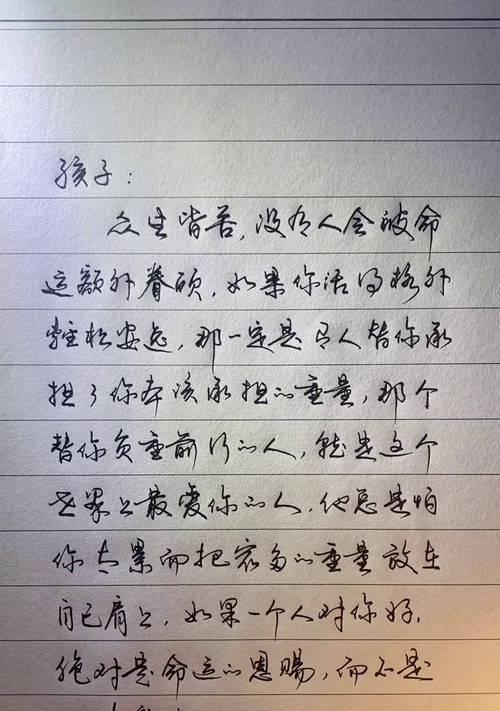 孩子：
众生皆苦，没有人会被命
运额外眷顾，如果你活得格外
轻松安逸，那一定是有人替你承
担了你本该承担的重量，那个
替你负重前行的人，就是这个
世界上最爱你的人，他总是怕
你太累而把最多的重量放在
自己肩上，如果一个人对你好，
绝对是命运的恩赐，而不是